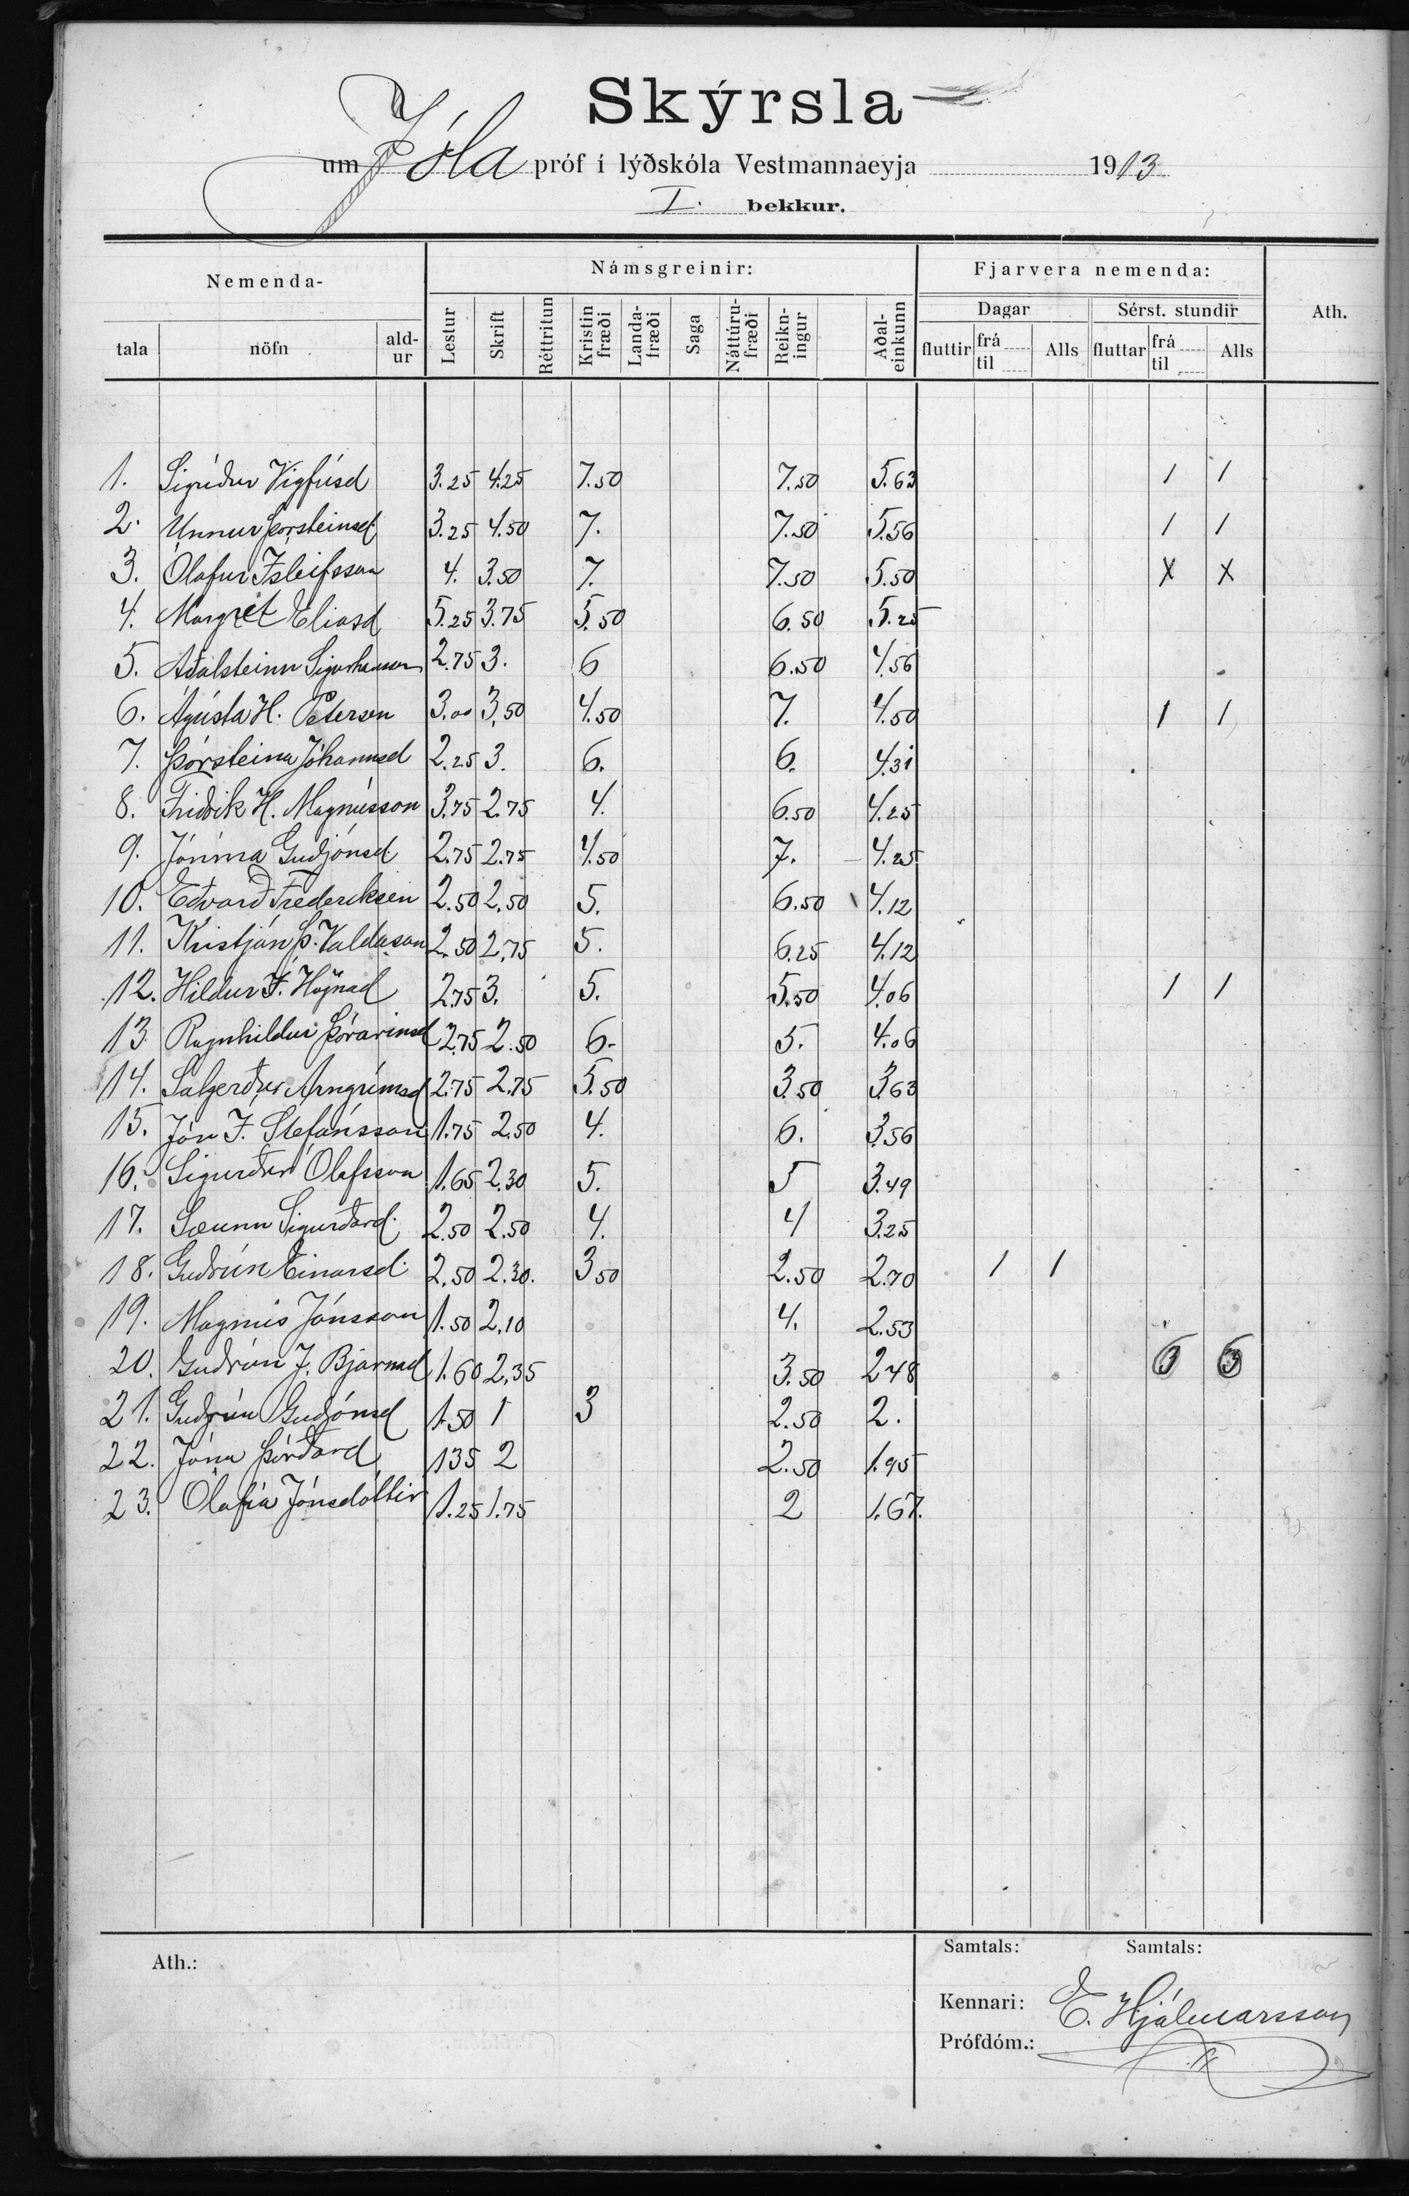 Skýrsla
um Jóla próf í lýðskóla Vestmannaeyja 1913
I. bekkur.
Nemenda- Námsgreinir: Fjarvera nemenda: Ath.
Dagar Sérst. stundir
tala nöfn ald-ur Lestur Skrift Réttritun Kristin fræði Landa-fræði Saga Náttúru-fræði Reikn-ingur Aðal-einkunn fluttir frá til Alls fluttar frá til Alls
1. Sigríður Vigfúsd 3.25 4.25 7.50 7.50 5.63 1 1
2. Unnur Þorsteinsd. 3.25 4.50 7. 7.50 5.56 1 1
3. Ólafur Ísleifsson 4. 3.50 7. 7.50 5.50 x x
4. Margrét Elíasd 5.25 3.75 5.50 6.50 5.25
5. Aðalsteinn Sigurhansson 2.75 3. 6 6.50 4.56
6. Ágústa H. Petersen 3.00 3,50 4.50 7. 4.50 1 1
7. Þórsteina Jóhannsd 2.25 3. 6. 6. 4.31
8. Friðrik H. Magnússon 3.75 2.75 4. 6.50 4.25
9. Jónína Guðjónsd. 2.75 2.75 4.50 7. 4.25
10. Eðvarð Frederiksen 2.50 2,50 5. 6.50 4.12
11. Kristján Þ. Valdason 2,50 2,75 5. 6.25 4.12
12. Hildur Í. 2.75 3. 5. 5.50 4.06 1 1
13. Ragnhildur Þórarinsd 2.75 2.50 6. 5. 4.06
14. Salgerður Arngrímsd 2.75 2.75 5.50 3.50 3,63
15. Jón Í. Stefánsson 1.75 2.50 4. 6. 3.56
16. Sigurður Ólafsson 1.65 2.30 5. 5 3.49
17. Sæunn Sigurðard. 2.50 2.50 4. 4 3.25
18. Guðrún Einarsd. 2,50 2.30. 3 50 2.50 2.70 1 1
19. Magnús Jónsson 1.50 2,10 4. 2.53
20. Guðrún J. Bjarnad 1.60 2,35 3.50 2 48
21. Guðrún Guðjónsd 1.50 1 3 2.50 2.
22. Jóna Þórðard 135 2 2.50 1.95
23. Ólafía Jónsdóttir 1.25 1.75 2 1.67.
Ath.: Samtals: Samtals:
Kennari: E. Hjálmarsson
Prófdóm.: